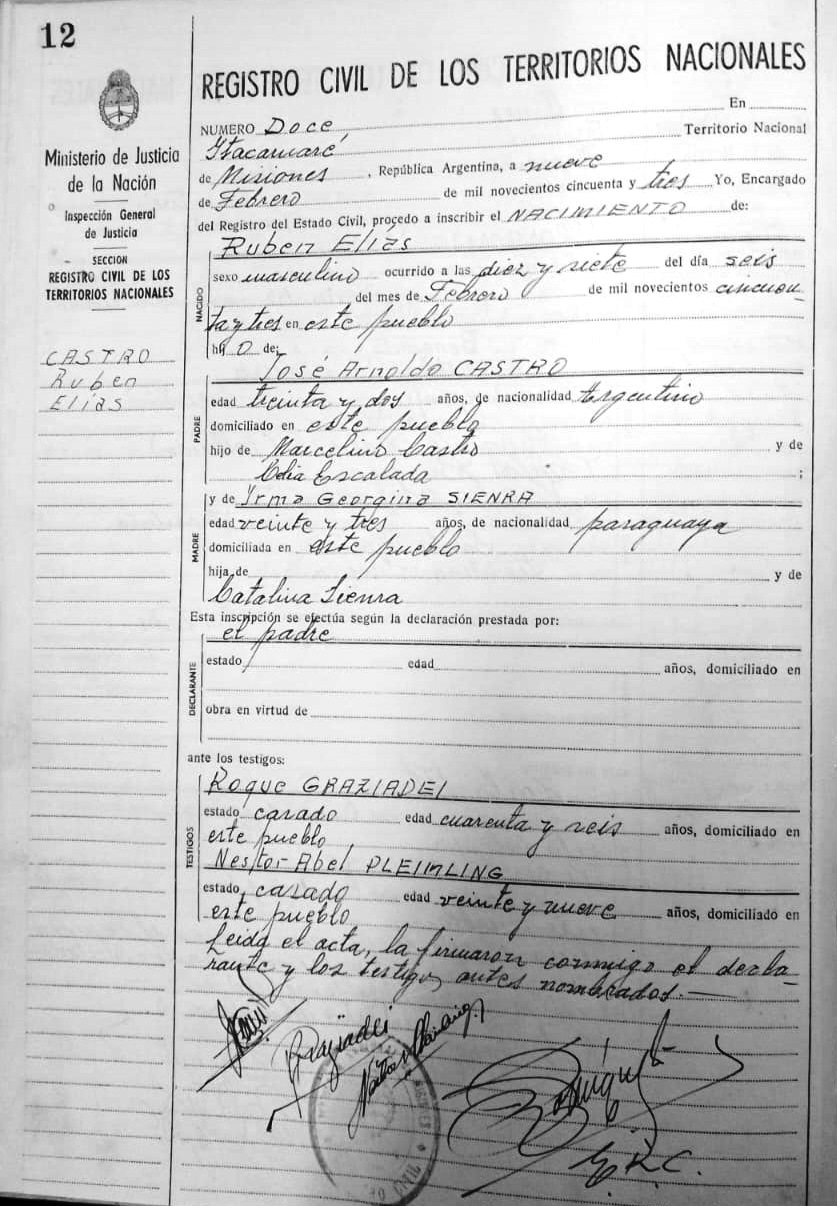 12
REGISTRO CIVIL DE LOS TERRITORIOS NACIONALES
Ministerio de Justicia
de la Nación
Inspección General
de Justicia
SECCION
REGISTRO CIVIL DE LOS
TERRITORIOS NACIONALES
CASTRO
Ruben
Elías
NUMERO Doce En
Itacaruaré, Territorio Nacional
de Misiones, República Argentina, a nueve
de Febrero de mil novecientos cincuenta y tres Yo, Encargado
del Registro del Estado Civil, procedo a inscribir el NACIMIENTO de:
NACIDO
Ruben Elías
sexo masculino ocurrido a las diez y siete del día seis
del mes de Febrero de mil novecientos cincuen-
ta y tres en este pueblo
hijo de:
PADRE
José Arnoldo CASTRO
edad treinta y dos años, de nacionalidad Argentino
domiciliado en este pueblo
hijo de Marcelino Castro y de
Celia Escalada ;
MADRE
y de Yrma Georgina SIENRA
edad veinte y tres años, de nacionalidad paraguaya
domiciliada en este pueblo
hija de y de
Catalina Sienra
Esta inscripción se efectúa según la declaración prestada por:
DECLARANTE
el padre
estado edad años, domiciliado en
obra en virtud de
ante los testigos:
TESTIGOS
Roque GRAZIADEI
estado casado edad cuarenta y seis años, domiciliado en
este pueblo
Nestor Abel PLEIMLING
estado casado edad veinte y nueve años, domiciliado en
este pueblo
Leida el acta, la firmaron conmigo el decla-
rante y los testigos antes nombrados.—
E.R.C.